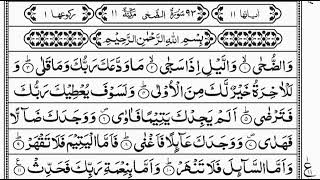 اٰیاتها ١١ ٩٣ سُوْرَةُ الضُّحٰى مَكِّيَّةٌ ١١ رکوعها ١
بِسْمِ اللهِ الرَّحْمٰنِ الرَّحِيْمِ
وَالضُّحٰى ۙ وَالَّيْلِ اِذَا سَجٰى ۙ مَا وَدَّعَكَ رَبُّكَ وَمَا قَلٰى ۗ وَ
لَلْاٰخِرَةُ خَيْرٌ لَّكَ مِنَ الْاُوْلٰى ۗ وَلَسَوْفَ يُعْطِيْكَ رَبُّكَ
فَتَرْضٰى ۗ اَلَمْ يَجِدْكَ يَتِيْمًا فَاٰوٰى ۪ وَوَجَدَكَ ضَآلًّا
فَهَدٰى ۪ وَوَجَدَكَ عَآئِلًا فَاَغْنٰى ۗ فَاَمَّا الْيَتِيْمَ فَلَا تَقْهَرْ ۗ
وَاَمَّا السَّآئِلَ فَلَا تَنْهَرْ ۗ وَاَمَّا بِنِعْمَةِ رَبِّكَ فَحَدِّثْ